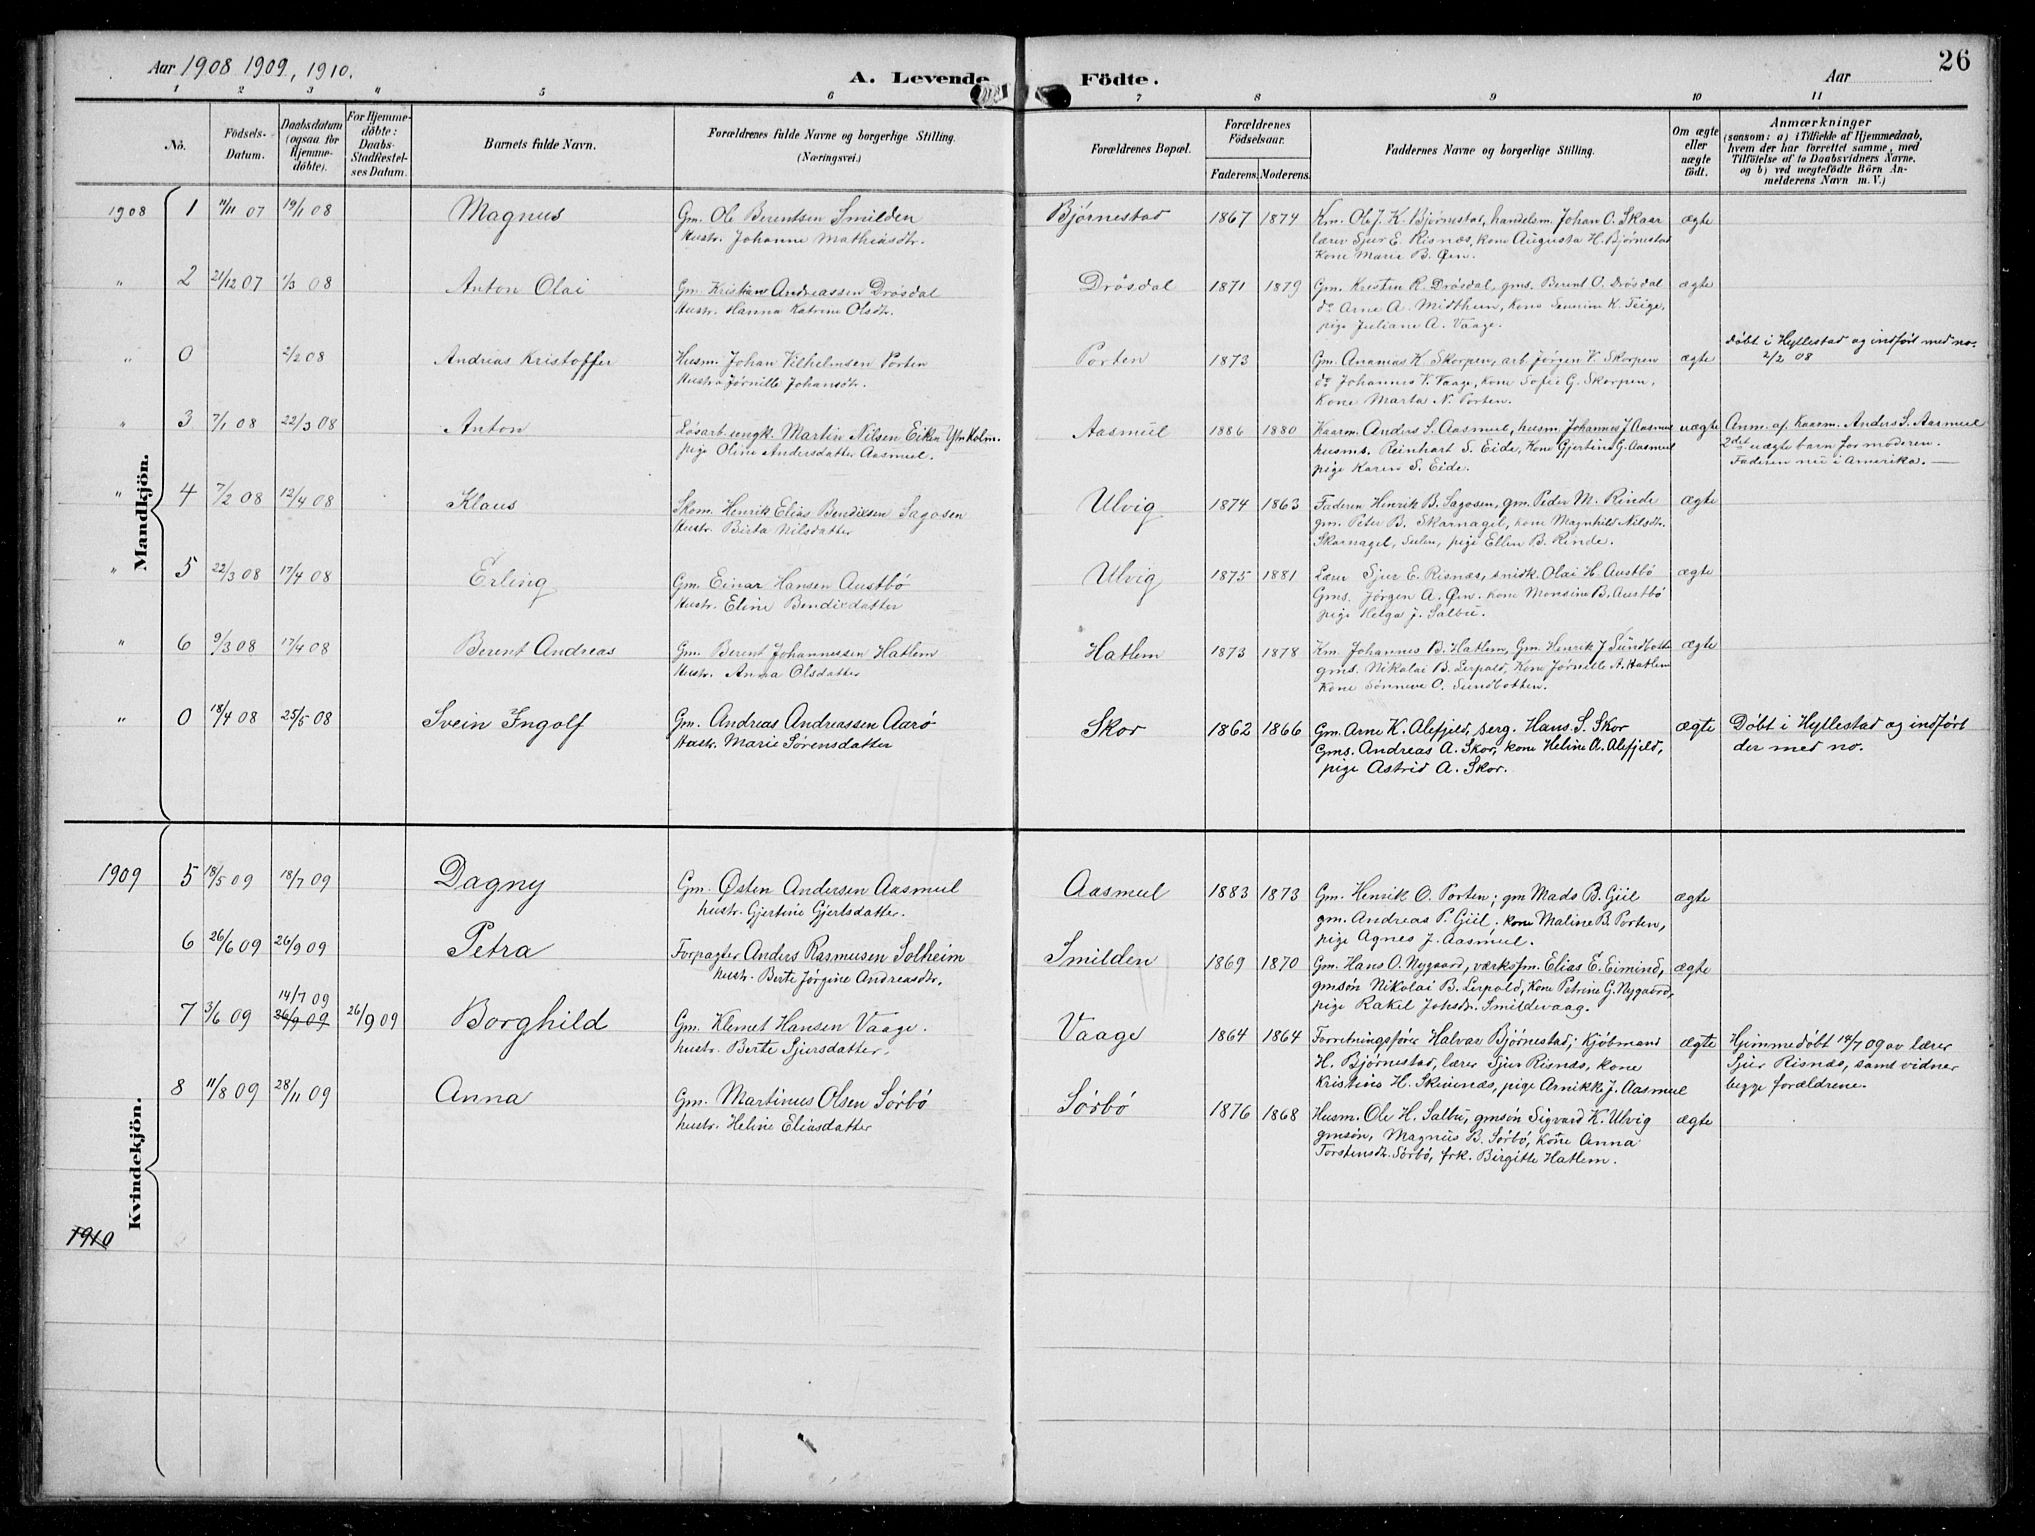 Aar 1908 1909, 1910.
A. Levende
Födte.
Aar
26
1 2 3 4 5 6 7 8 9 10 11
No.
Födsels-Datum.
Daabsdatum (ogsaa for Hjemmedöbte).
For Hjemmedöbte: Daabs-Stadfestelses Datum.
Barnets fulde Navn.
Forældrenes fulde Navne og borgerlige Stilling.
(Næringsvei.)
Forældrenes Bopæl.
Forældrenes Födselsaar.
Faderens. Moderens.
Faddernes Navne og borgerlige Stilling.
Om ægte eller uægte födt.
Anmærkninger
(saasom: a) i Tilfælde af Hjemmedaab, hvem der har forrettet samme, med Tilföielse af to Daabsvidners Navne, og b) ved uægtefödte Börn Anmelderens Navn m. V.)
Mandkjön.
1908 1 11/11 07 19/1 08 Magnus Gm. Ole Berentsen Smilden Bjørnestad 1867 1874 Km. Ole J. K. Bjørnestad, handelsm. Johan O. Skaar ægte
Hustr. Johanne Mathiasdtr. lærer Sjur E. Risnæs, kone Augusta H. Bjørnestad
Kone Marie B. Øen.
" 2 21/12 07 1/3 08 Anton Olai Gm. Kristian Andreassen Drøsdal Drøsdal 1871 1879 Gm. Kresten R. Drøsdal, gms. Berent O. Drøsdal ægte
Hustr. Hanna Katrine Olsdtr. do Arne A. Midthun, kone Severine K. Teige,
pige Juliane A. Vaage.
" 0 2/2 08 Andreas Kristoffer Husm. Johan Vilhelmsen Porten Porten 1873 Gm. Ananias K. Skorpen, arb. Jørgen V. Skorpen ægte Døbt i Hyllestad og indført med no.
2/2 08
Hustr Jørnille Johansdtr. do Johannes V. Vaage, kone Sofie G. Skorpen,
Kone Marta N. Porten.
" 3 7/1 08 22/3 08 Anton Løsarb. ungk. Martin Nilsen Eiken Ytre Holm. Aasmul 1886 1880 Kaarm. Anders S. Aasmul, husm. Johannes J. Aasmul uægte Anm. af Kaarm. Anders S. Aasmul
pige Oline Andersdatter Aasmul. husms. Reinhart S. Eide, kone Gjertine G. Aasmul 2det uægte barn for moderen.
pige Karen S. Eide. Faderen nu i Amerika.
" 4 7/2 08 12/4 08 Klaus Skom. Henrik Elias Bendixen Sagosen Ulvig 1874 1863 Faderen Henrik B. Sagosen, gm. Peder M. Rinde ægte
Hustr. Birta Nilsdatter gm. Peter B. Skarnagel, kone Magnhild Nilsdtr.
Skarnagel, Sulen, pige Ellen B. Rinde.
" 5 22/3 08 17/4 08 Erling Gm. Einar Hansen Austbø Ulvig 1875 1881 Lærer Sjur E. Risnæs, snidk. Olai H. Austbø ægte
Hustr. Eline Bendixdatter Gms. Jørgen A. Øen. kone Monsine B. Austbø
pige Helga J. Salbu.
" 6 9/3 08 17/4 08 Berent Andreas Gm. Berent Johannessen Hatlem Hatlem 1873 1878 Km. Johannes B. Hatlem, Gm. Henrik J. Sundbotten ægte
Hustr. Anna Olsdatter gms. Nikolai B. Leirpold, Kone Jørnille A. Hatlem
Kone Sønneve O. Sundbotten.
" 0 18/4 08 25/5 08 Svein Ingolf Gm. Andreas Andreassen Aarö Skor 1862 1866 Gm. Arne K. Alefjeld, serg. Hans S. Skor ægte Döbt i Hyllestad og indført
Hustr. Marie Sørensdatter Gms. Andreas A. Skor, kone Heline A. Alefjeld, der med no.
pige Astrid A. Skor.
Kvindekjön.
1909 5 18/5 09 18/7 09 Dagny Gm. Østen Andersen Aasmul Aasmul 1883 1873 Gm. Henrik O. Porten; gm Mads B. Gjil ægte
hustr. Gjertine Gjertsdatter. gm. Andreas P. Gjil, kone Maline B. Porten,
pige Agnes J. Aasmul.
6 26/6 09 26/9 09 Petra Forpagter Anders Rasmusen Solheim Smilden 1869 1870 Gm. Hans O. Nygaard, værksfm. Elias E. Eimind, ægte
hustr. Berte Jørgine Andreasdtr. gmsøn Nikolai B. Leirpold, Kone Petrine G. Nygaard,
pige Rakel Johsdtr. Smildevaag.
7 3/6 09 14/7 09 26/9 09 26/9 09 Borghild Gm. Klemet Hansen Vaage. Vaage 1864 1864 Forretningsfører Halvar Bjørnestad, Kjøbmand ægte Hjemmedøbt 14/7 09 av lærer
hustr. Berte Sjursdatter. H. Bjørnestad, lærer Sjur Risnæs, kone Sjur Risnæs, samt vidner
Kristine H. Skivenæs, pige Arnikke J. Aasmul begge forældrene.
8 11/8 09 28/11 09 Anna Gm. Martinus Olsen Sørbø Sørbø 1876 1868 Husm. Ole H. Salbu, gmsøn Sigvard K. Ulvig ægte
hustr. Heline Eliasdatter gmsøn, Magnus B. Sørbø, Kone Anna
Torstensdtr. Sørbø, frk. Birgitte Hatlem.
1910